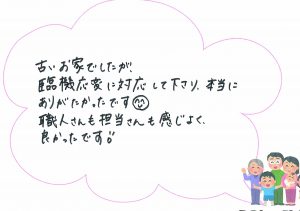 古いお家でしたが、
臨機応変に対応して下さり、本当に
ありがたかったです😊
職人さんも担当さんも感じよく、
良かったです。